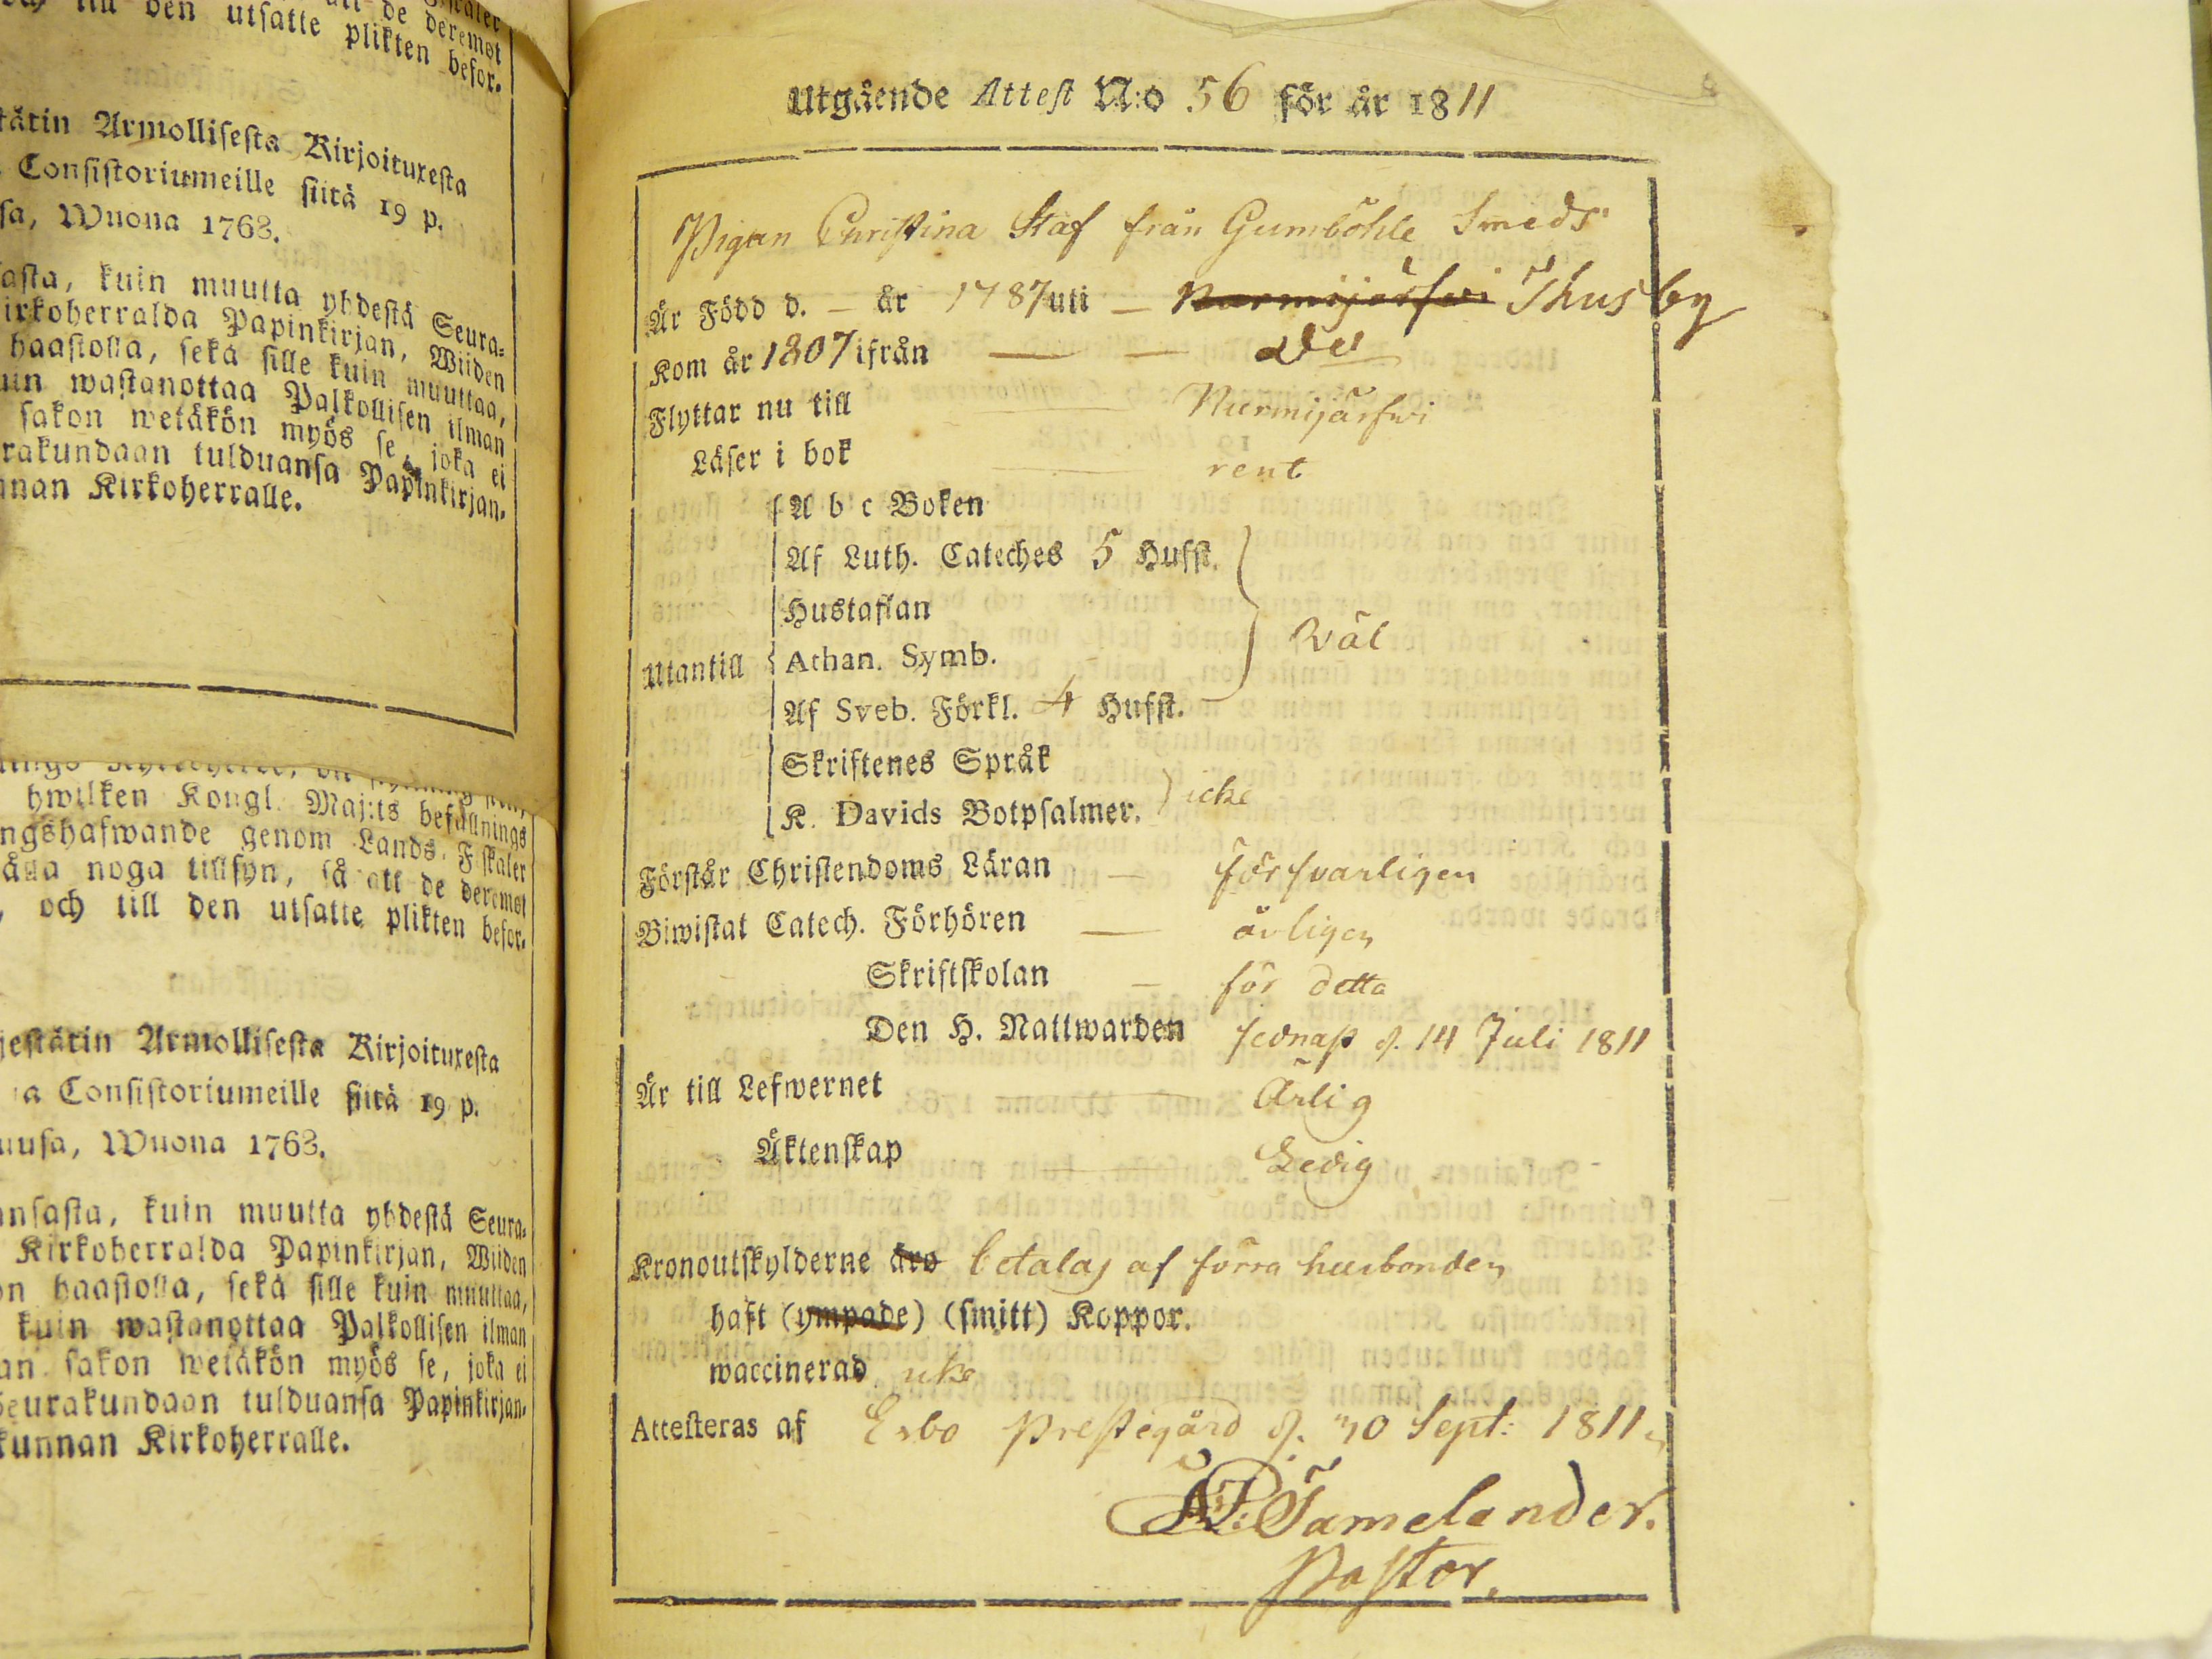 den utsatte plikten befor-
tätin Armollisesta Kirjoituxesta
Consistoriumeille siitä 19 p.
sa, Wuona 1763.
asta, kuin muutta yhdestä Seura-
irkoherralda Papinkirjan, Wiiden
haastolla, sekä sille kuin muuttaa,
uin wastanottaa Palkollisen ilman
sakon wetäkön myös se, joka ei
rakundaan tulduansa Papinkirjan-
nnan Kirkoherralle.
hwilken Kongl. Maj:ts befallnings
ngshafwande genom Lands-Fiskaler
noga tillsyn, så att de deremot
, och till den utsatte plikten befor-
jestätin Armollisesta Kirjoituxesta
a Consistoriumeille siitä 19 p.
uusa, Wuona 1763.
ansasta, kuin muutta yhdestä Seura-
Kirkoherralda Papinkirjan, Wiiden
on haastolla, sekä sille kuin muuttaa,
kuin wastanottaa Palkollisen ilman
an sakon wetäkön myös se, joka ei
Seurakundaan tulduansa Papinkirjan-
kunnan Kirkoherralle.
Utgående Attest N:o 56 för år 1811
Pigan Christina Staf från Gumböhle Smeds
Är Född d. — år 1787 uti — Nurmijärfwi Thusby
Kom år 1807 ifrån — — do
Flyttar nu till Nurmijärfwi
Läser i bok rent
A b c Boken
Af Luth. Cateches 5 Hufst.
Hustaflan
Utantill Athan. Symb. Wäl
Af Sveb. Förkl. 4 Hufst.
Skriftenes Språk
K. Davids Botpsalmer. icke
Förstår Christendoms Läran — försvarligen
Biwistat Catech. Förhören — årligen
Skriftskolan — för detta
Den H. Nattwarden sednast d. 14 Juli 1811
Är till Lefwernet Ärlig
Äktenskap Ledig
Kronoutskylderne äro betalas af förra husbonden
haft (ympade) (smitt) Koppor.
waccinerad icke
Attesteras af Esbo Prestegård d. 30 Sept: 1811
Tamelander.
Pastor.